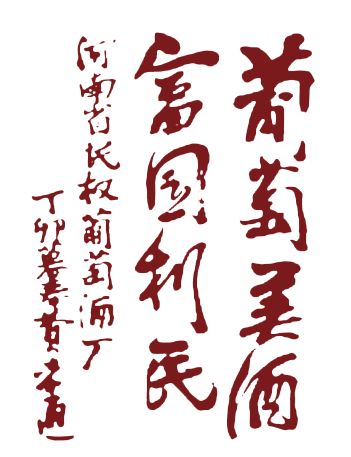 葡萄美酒
富国利民
河南省民权葡萄酒厂
丁卯暮春黄火青